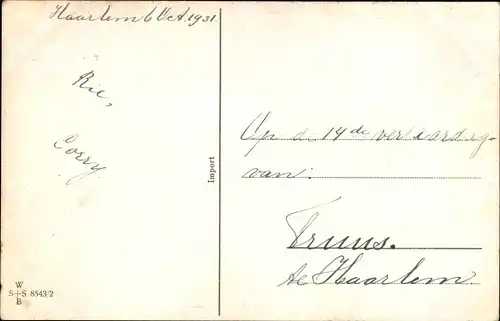 Haarlem 6 Oct. 1931
Rie,
Corry
Import
Op de 14de verjaardag-
van:
Truus.
te Haarlem.
W
S+S 8543/2
B